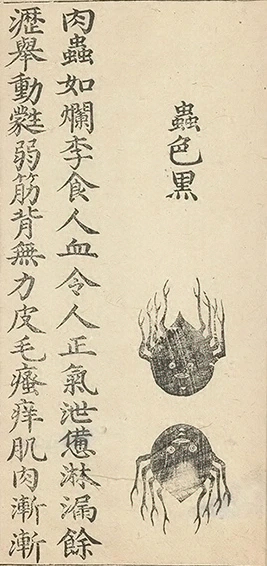 蟲色黑
肉蟲如爛李食人血令人正氣泄憊淋漏餘
瀝舉動弱筋背無力皮毛瘙痒肌肉漸漸